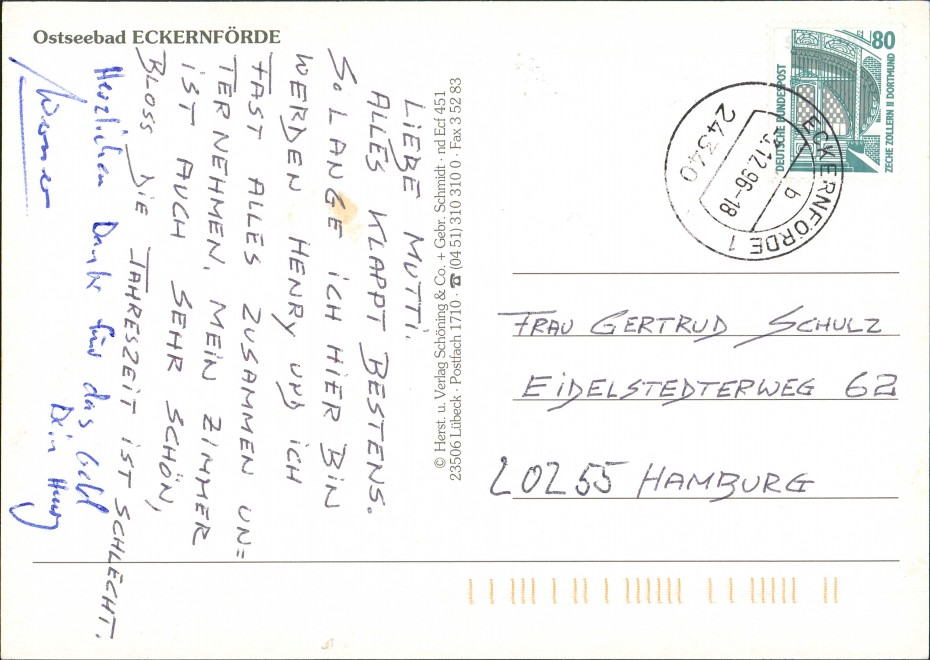 Ostseebad ECKERNFÖRDE
LIEBE MUTTI,
ALLES KLAPPT BESTENS.
SOLANGE ICH HIER BIN
WERDEN HENRY UND ICH
FAST ALLES ZUSAMMEN UN=
TERNEHMEN. MEIN ZIMMER
IST AUCH SEHR SCHÖN,
BLOSS DIE JAHRESZEIT IST SCHLECHT.
Herzlichen Dank für das Geld
Dein Henry
Werner
© Herst. u. Verlag Schöning & Co. + Gebr. Schmidt · nd Ecf 451
23506 Lübeck · Postfach 1710 · ☎ (04 51) 310 310 0 · Fax 3 52 83
80
DEUTSCHE BUNDESPOST
ZECHE ZOLLERN II DORTMUND
ECKERNFÖRDE 1
.12.96-18
b
24340
FRAU GERTRUD SCHULZ
EIDELSTEDTERWEG 62
20255 HAMBURG